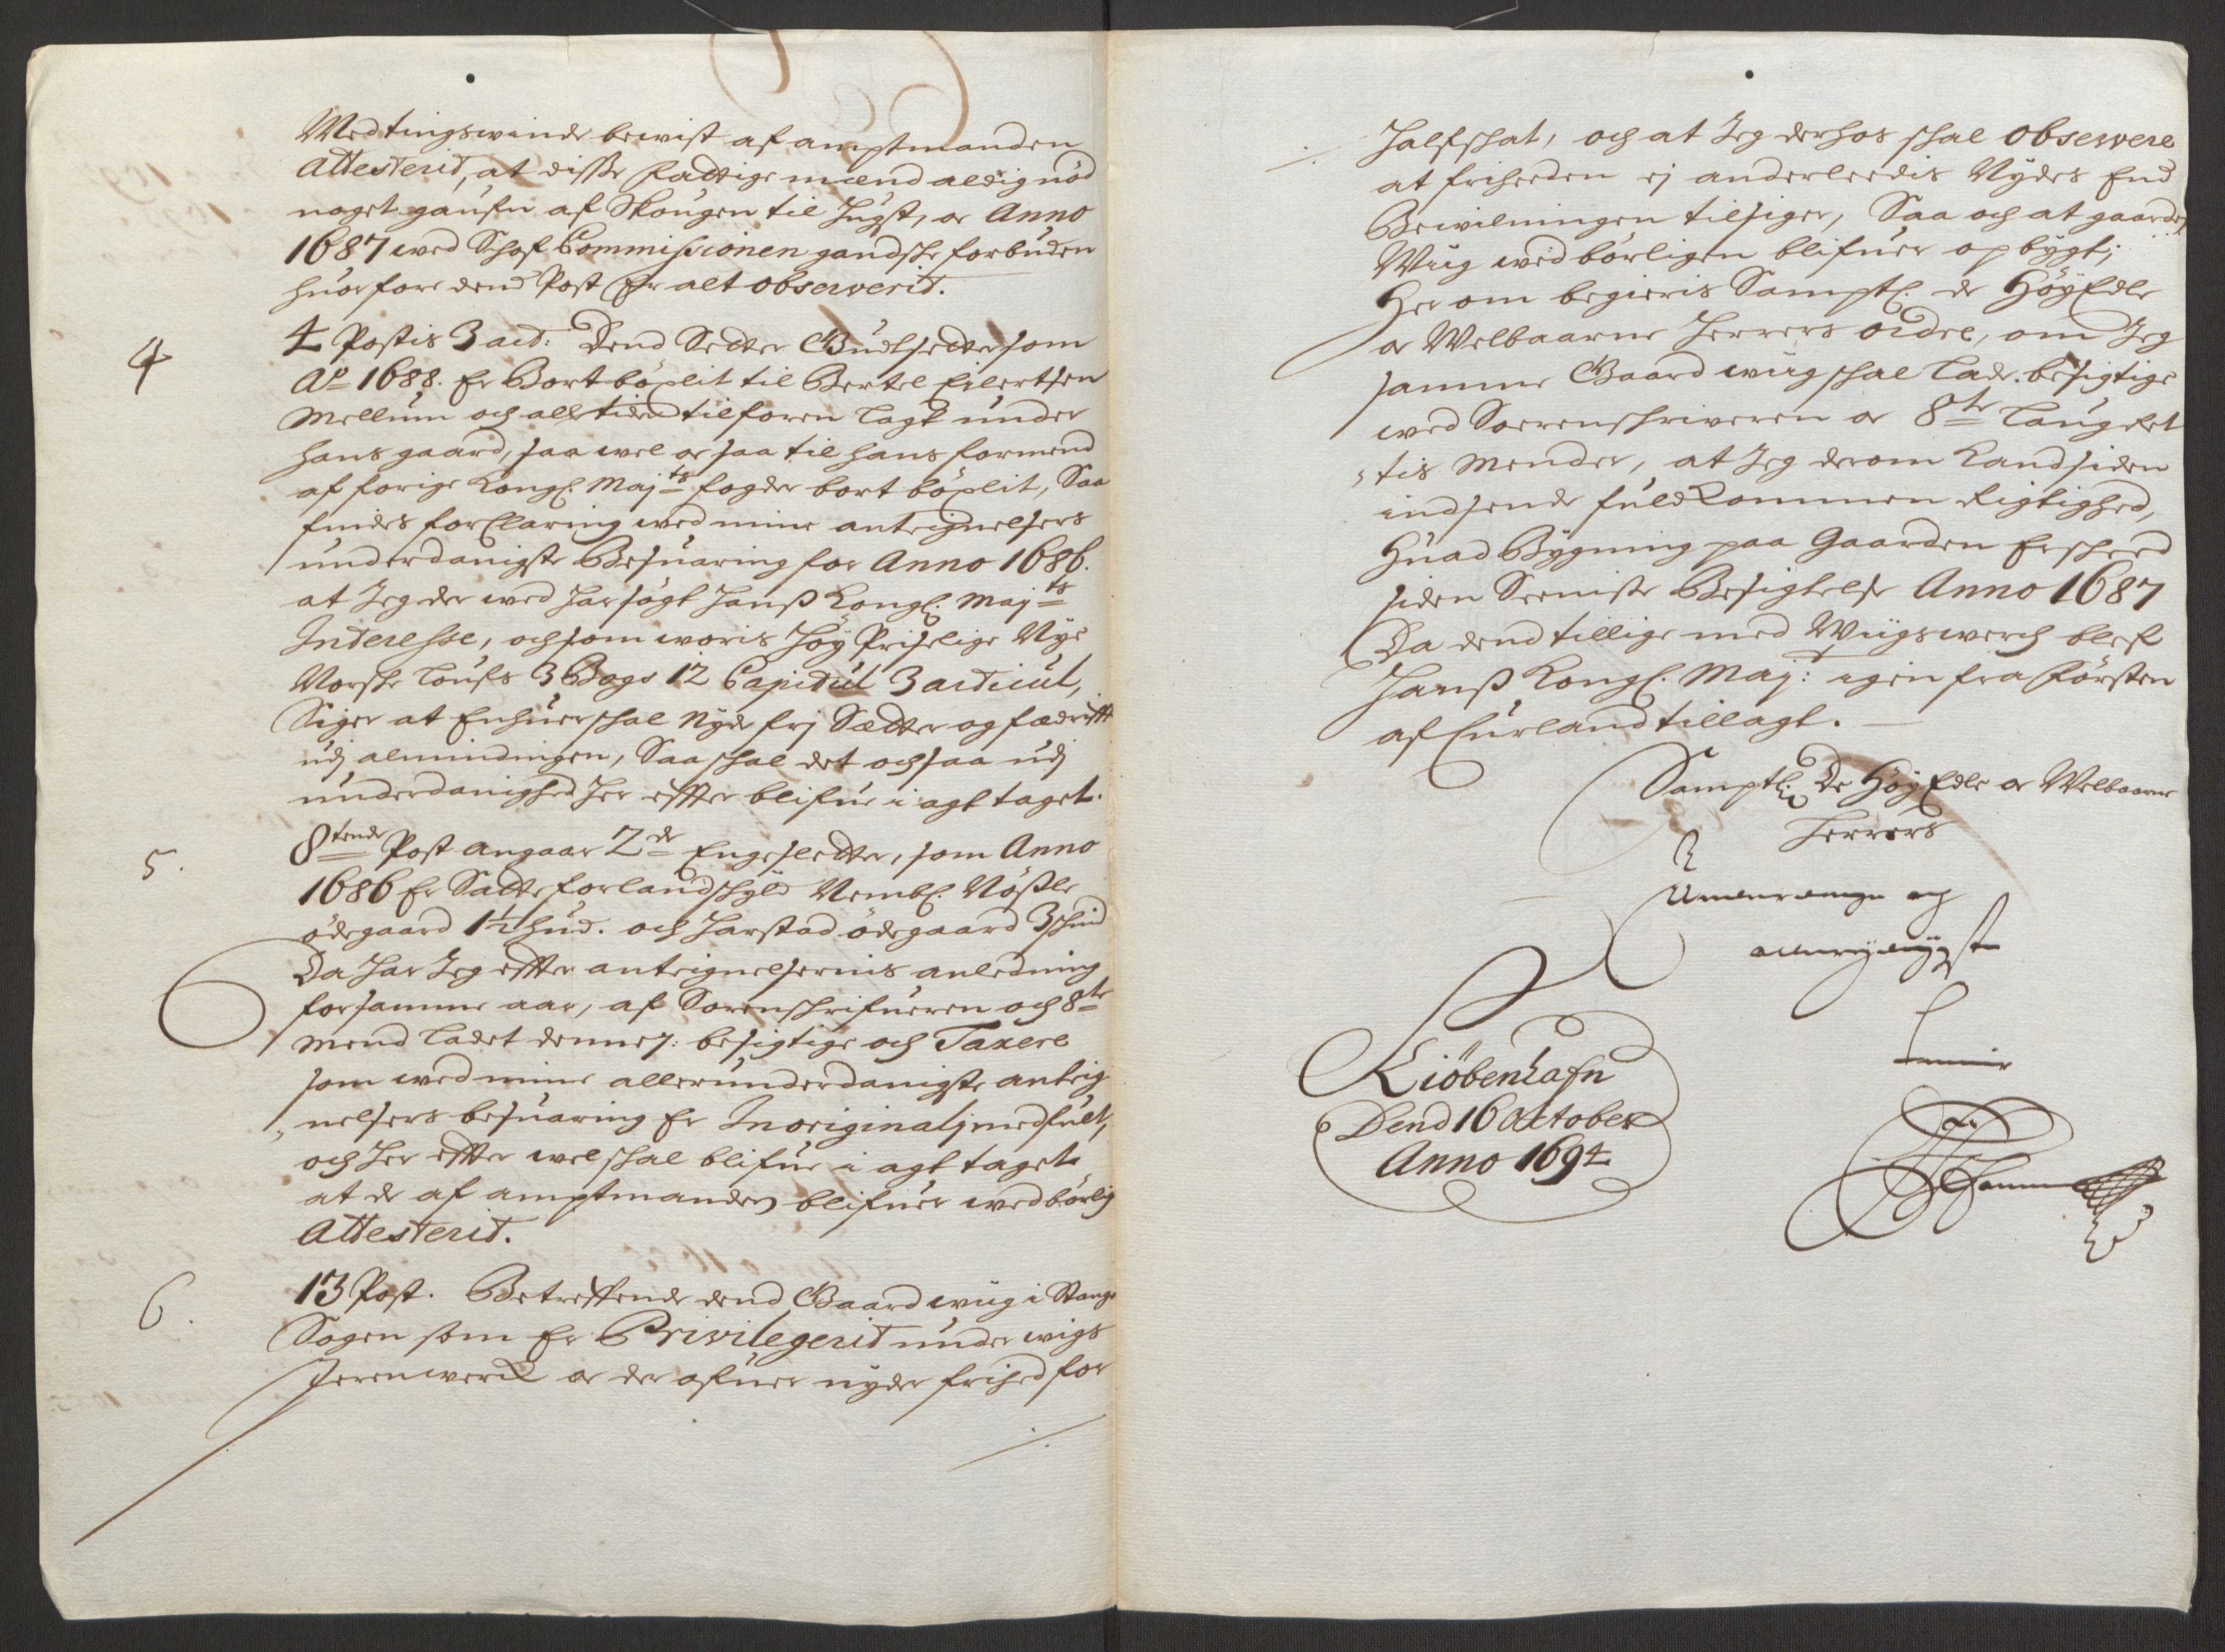 Med tingswinde bewist af amptmanden
Attesterit, at disse fattige mænd aldrig nöd
noget gaufn af Skougen til Hugst, or Anno
1687 wed Schof Commissionen gandske forbuden
huorfore dend Post Er alt observerit.
4
4 Postis 3 art: Dend Setter Gudlsetter som
Ao 1688. Er Bortböxlit til Bertel Eilertsen
Mellum och alle tider tilforen lagt under
hans gaard, saa wel or saa til hans formend
af forige Kongl. Majts fogder bort böxlit, Saa
findes forklaring wed mine antegnelsers
underdanigste Besuaring for Anno 1686.
at Jeg der wed har sögt Hanss Kongl. Majts
Interesse, och som woris Höy Priselige Nye
Norske Loufs 3 Bogs 12 Capitul 3 articul,
Siger at Enhuer skal Nyde frj Sætter og fædrifft
udj almindingen, Saa skal det och saa udj
underdanighed her effter blifue i agt taget.
5.
8tende Post angaar 2de Engesletter, som Anno
1686 Er Satte for landskyld Nembl. Nössle
ödegaard 1½ hud. och Harstad ödegaard 3 skind
Da har Jeg effter antegnelsernis anledning
for samme aar, af Sorenskrifueren och 8te
Mend ladet dennem: besigtige och Taxere
som wed mine allerunderdanigste anteig
„nelsers besuaring Er In originalj medfult,
och her effter wel skal blifue i agt taget
at de af amptmanden blifuer wedbörlig
Attesterit.
6.
13 Post. Betreffende dend Gaard wiig i Stange
Sogen som Er Privilegerit under wigs
Jerenwerck or der ofuer nyder frihed for
./.
./.
half skat, och at Jeg derhos skal observere
at friheeden ej anderleedis Nydes End
Bewilningen tilsiger, Saa och at gaarden
Wiig wedbörligen blifuer opbygt;
Her om begieris Samptl. de HöyEdle
or Welbaarne Herrers ordre, om Jeg
samme Gaard wiig skal lade besigtige
wed Soerenskriveren or 8te Laugret
„tis Mender, at Jeg derom Landsiden
indsende fuldkommen Rigtighed,
Huad Bygning paa Gaarden Er skeed
siden Seeniste Besigtelse Anno 1687
Da dend tillige med Wiigswerch blef
Hanss Kongl. Maj: igen fra försten
af Curland tillagt.
Samptl: De HöyEdle or Welbaarne
Herrers
Kiöbenhafn
Dend 16 October
Anno 1694